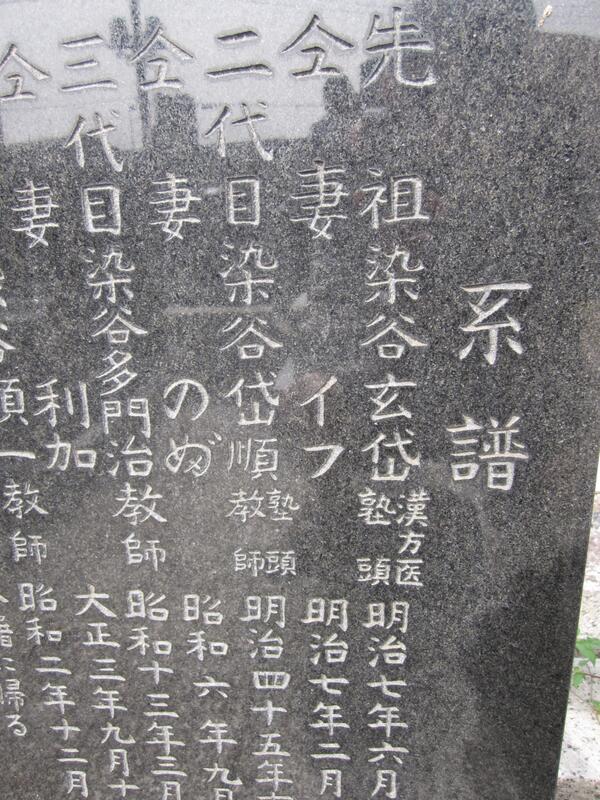 系譜
先祖染谷玄岱 漢方医 塾頭 明治七年六月
仝 妻 イフ 明治七年二月
二代目染谷岱順 塾頭 教師 明治四十五年
仝 妻 のぶ 昭和六年九月
三代目染谷多門治 教師 昭和十三年三月
仝 妻 利加 大正三年九月十
谷順一 教師 昭和二年十二月
帰る